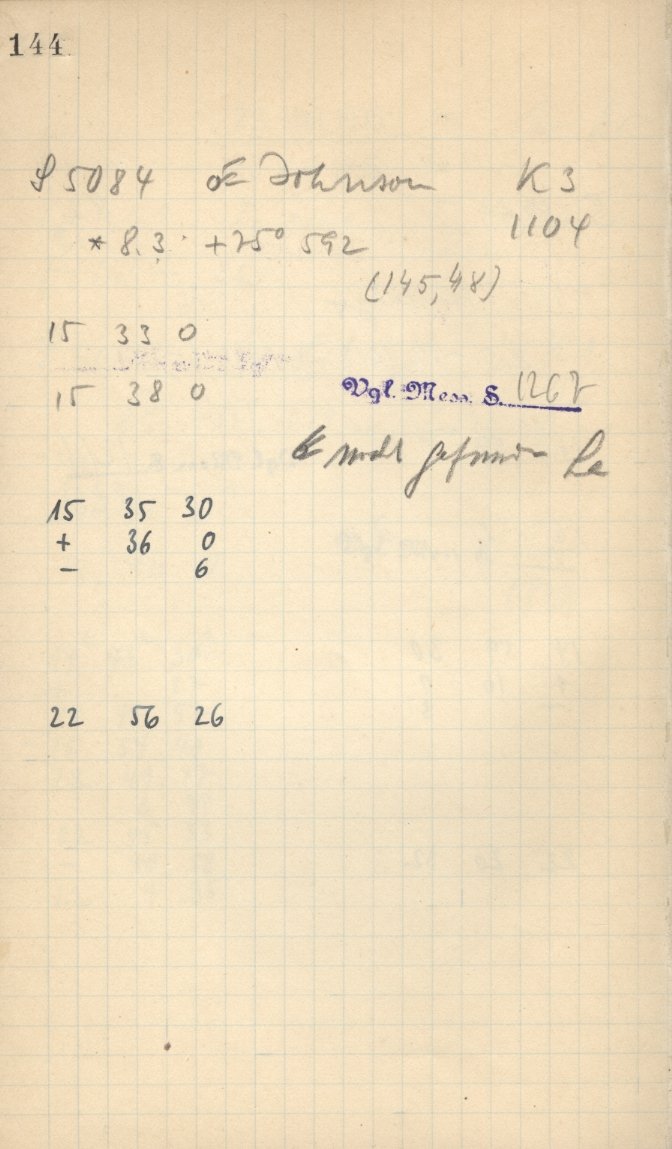 144
S 5084 Johnson K 3
* 8.3 +25° 592 1104
(145,48)
15 33 0
15 38 0 Vgl. Mess. S. 1267
nicht gefunden
15 35 30
+ 36 0
− 6
22 56 26